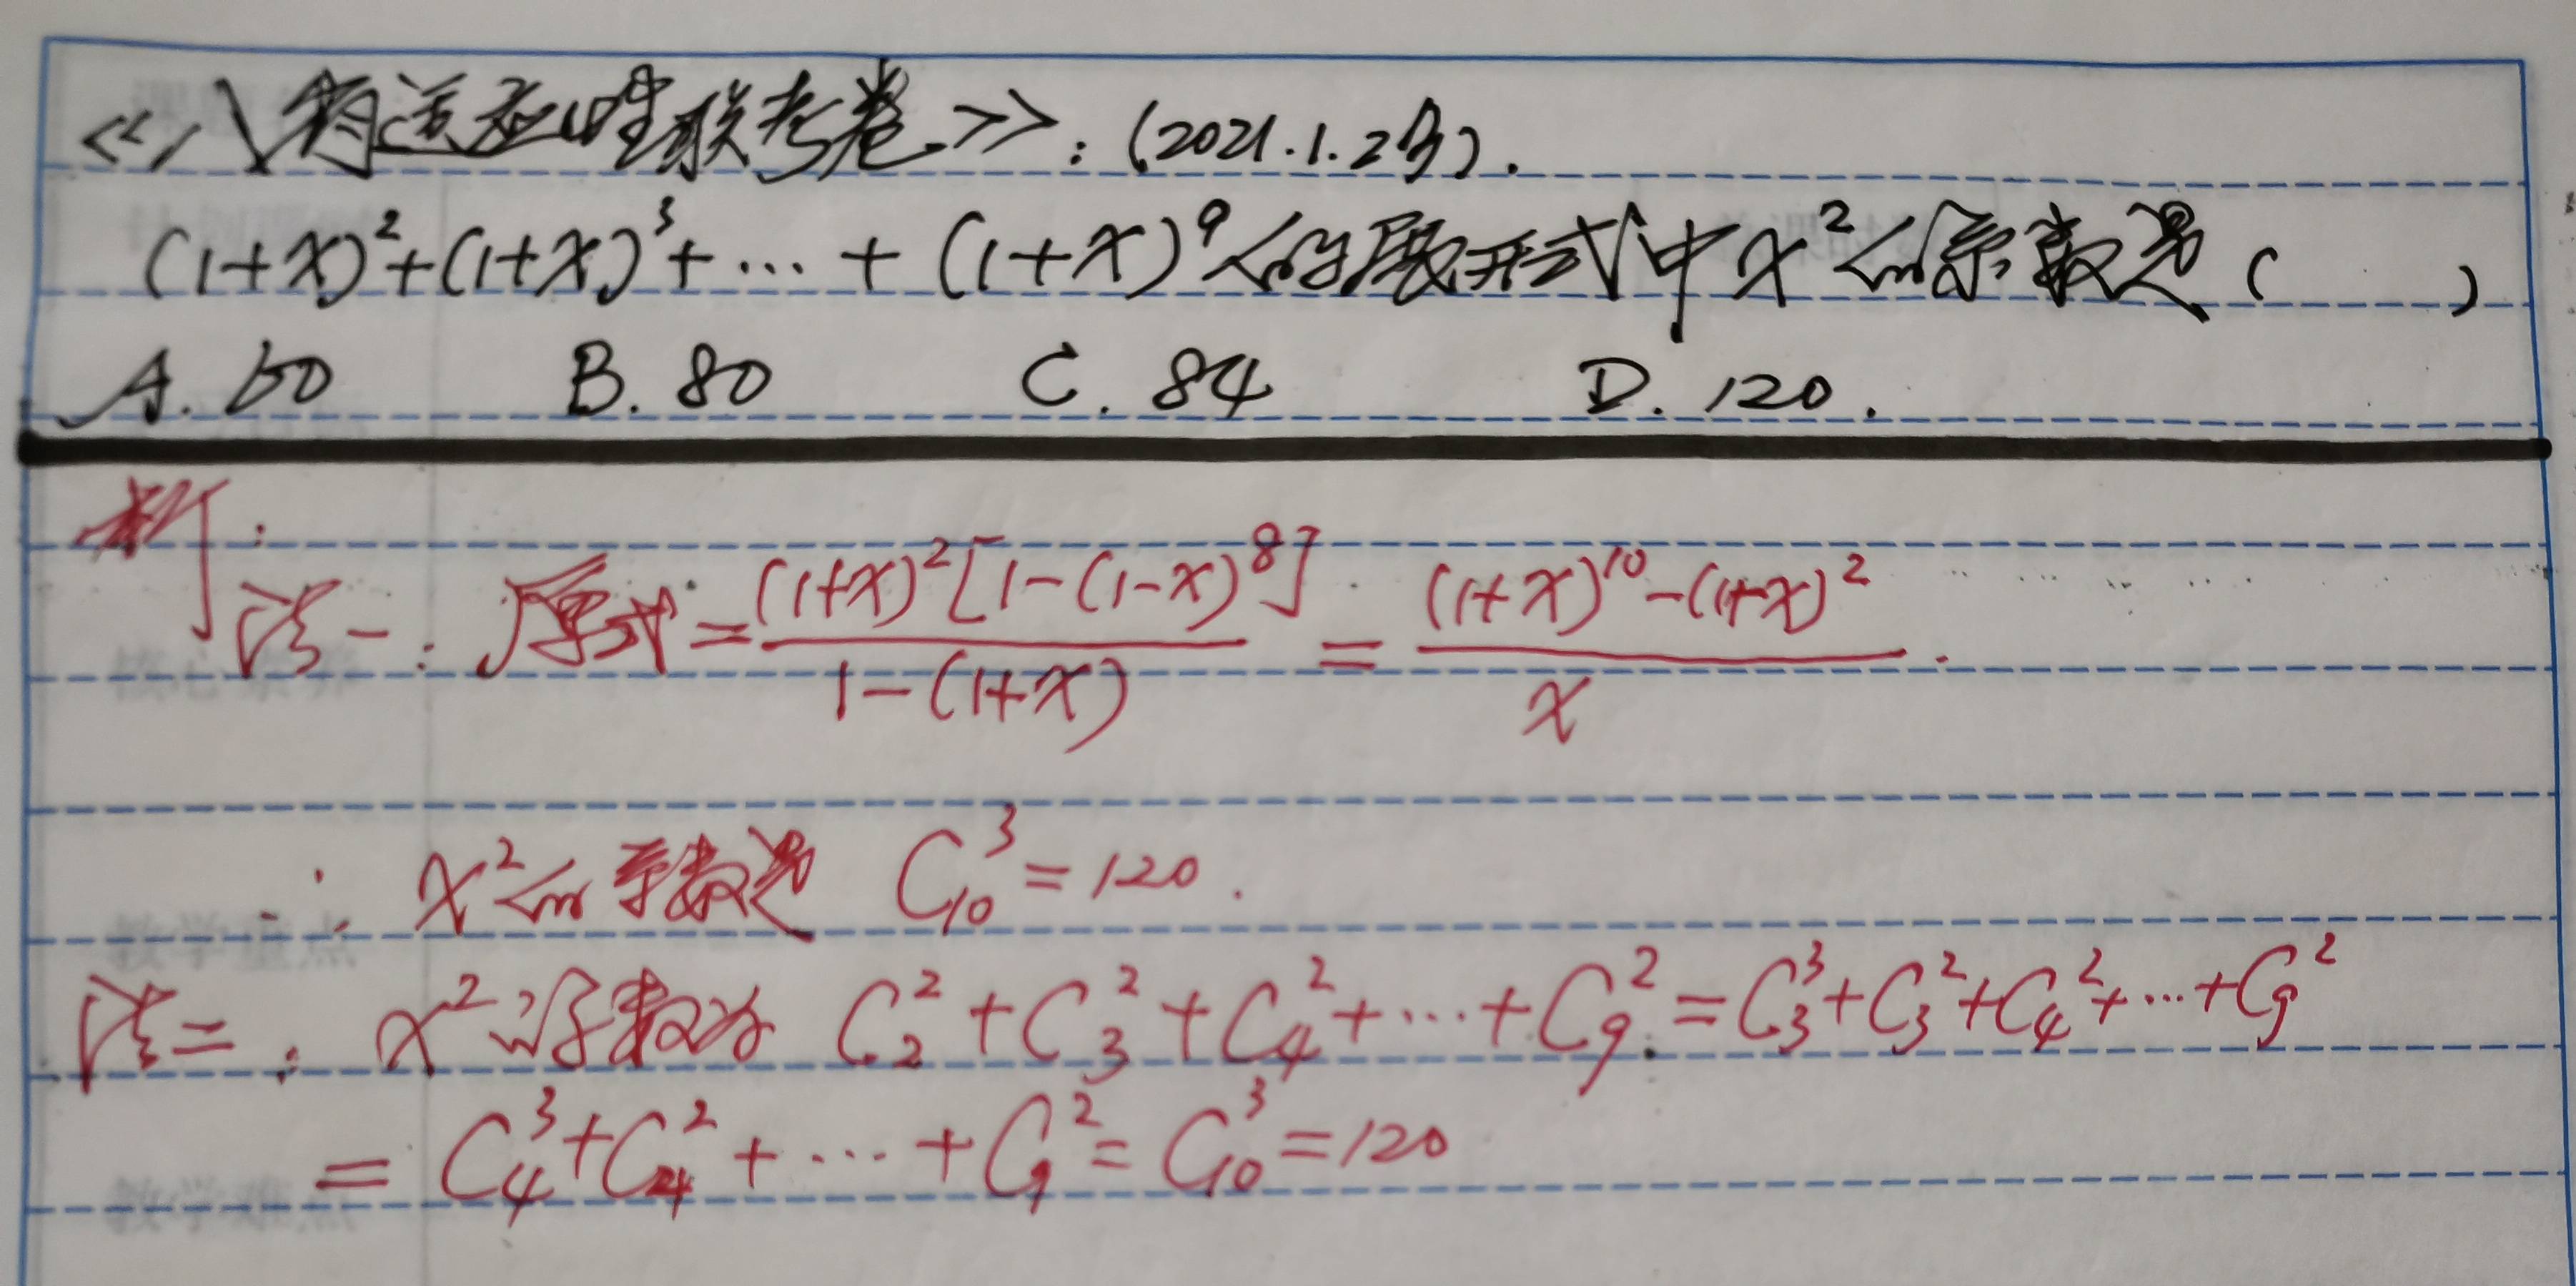 《八省适应性联考卷》:(2021.1.23).
(1+x)²+(1+x)³+…+(1+x)⁹的展开式中x²的系数是( )
A. 60 B. 80 C. 84 D. 120.
析:
法一: 原式=(1+x)²[1-(1-x)⁸]/1-(1+x) = (1+x)¹⁰-(1+x)²/x.
∴ x²的系数是 C₁₀³=120.
法二: x²系数为 C₂²+C₃²+C₄²+…+C₉²=C₃³+C₃²+C₄²+…+C₉²
=C₄³+C₄²+…+C₉²=C₁₀³=120